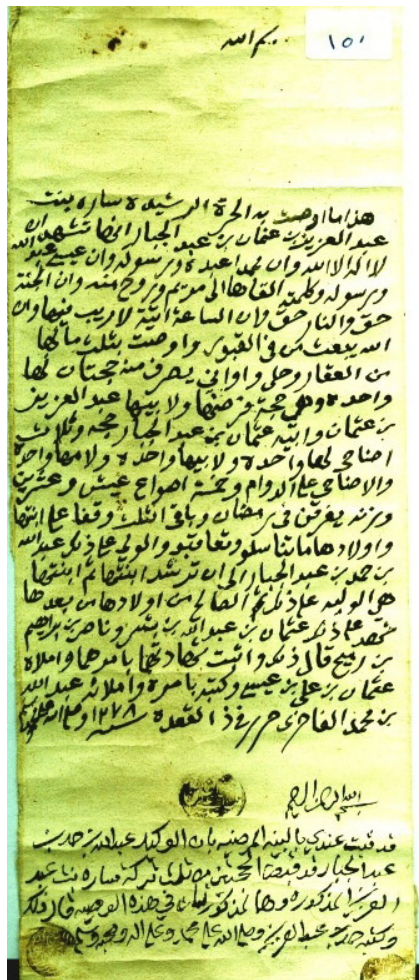 ١٥١
بسم الله
هذا ما اوصت به الحرة الرشيدة سارة بنت
عبد العزيز بن عثمان بن عبد الجبار انها تشهد ان
لا اله الا الله وان محمدا عبده ورسوله وان عيسى عبد الله
ورسوله وكلمته القاها الى مريم وروح منه وان الجنة
حق والنار حق وان الساعة اتية لا ريب فيها وان
الله يبعث من في القبور واوصت بثلث مالها
من العقار وحلي واواني يصرف منه حجتان لها
واحدة وهي حجة فرضها ولابيها عبد العزيز
بن عثمان وابيه عثمان بن عبد الجبار حجة وثلاث
اضاحي لها واحدة ولابيها واحدة ولامها واحدة
والاضاحي على الدوام وخمسة اصواع عيش وعشرين
وزنه يفرقن في رمضان وباقي الثلث وقفا على ابنتها
واولادها ما تناسلو وتعاقبو والولي على ذلك عبد الله
بن حمد بن عبد الجبار الى ان ترشد ابنتها ثم ابنتها
هي الوليه على ذلك ثم الصالح من اولادها من بعدها
شهد على ذلك عثمان بن عبد الله بن بشر وناصر بن براهيم
بن ربيع قال ذلك واثبت شهادتهما بامرهما واملاه
عثمان بن علي بن عيسى وكتبه بامره واملائه عبد الله
بن محمد الفاخري حرر في ذا القعدة سنة ١٢٧٨ وصلى الله على محمد
بسم الله الرحمن الرحيم
قد ثبت عندي بالبينه المرضيه بان الوكيل عبد الله بن حمد بن
عبد الجبار قد قبض الحجتين من ثلث تركة سارة بنت عبد
العزيز المذكوره وهما المذكورتان في هذه الوصيه قال ذلك
وكتبه حمد بن عبد العزيز وصلى الله على محمد وعلى اله وصحبه وسلم